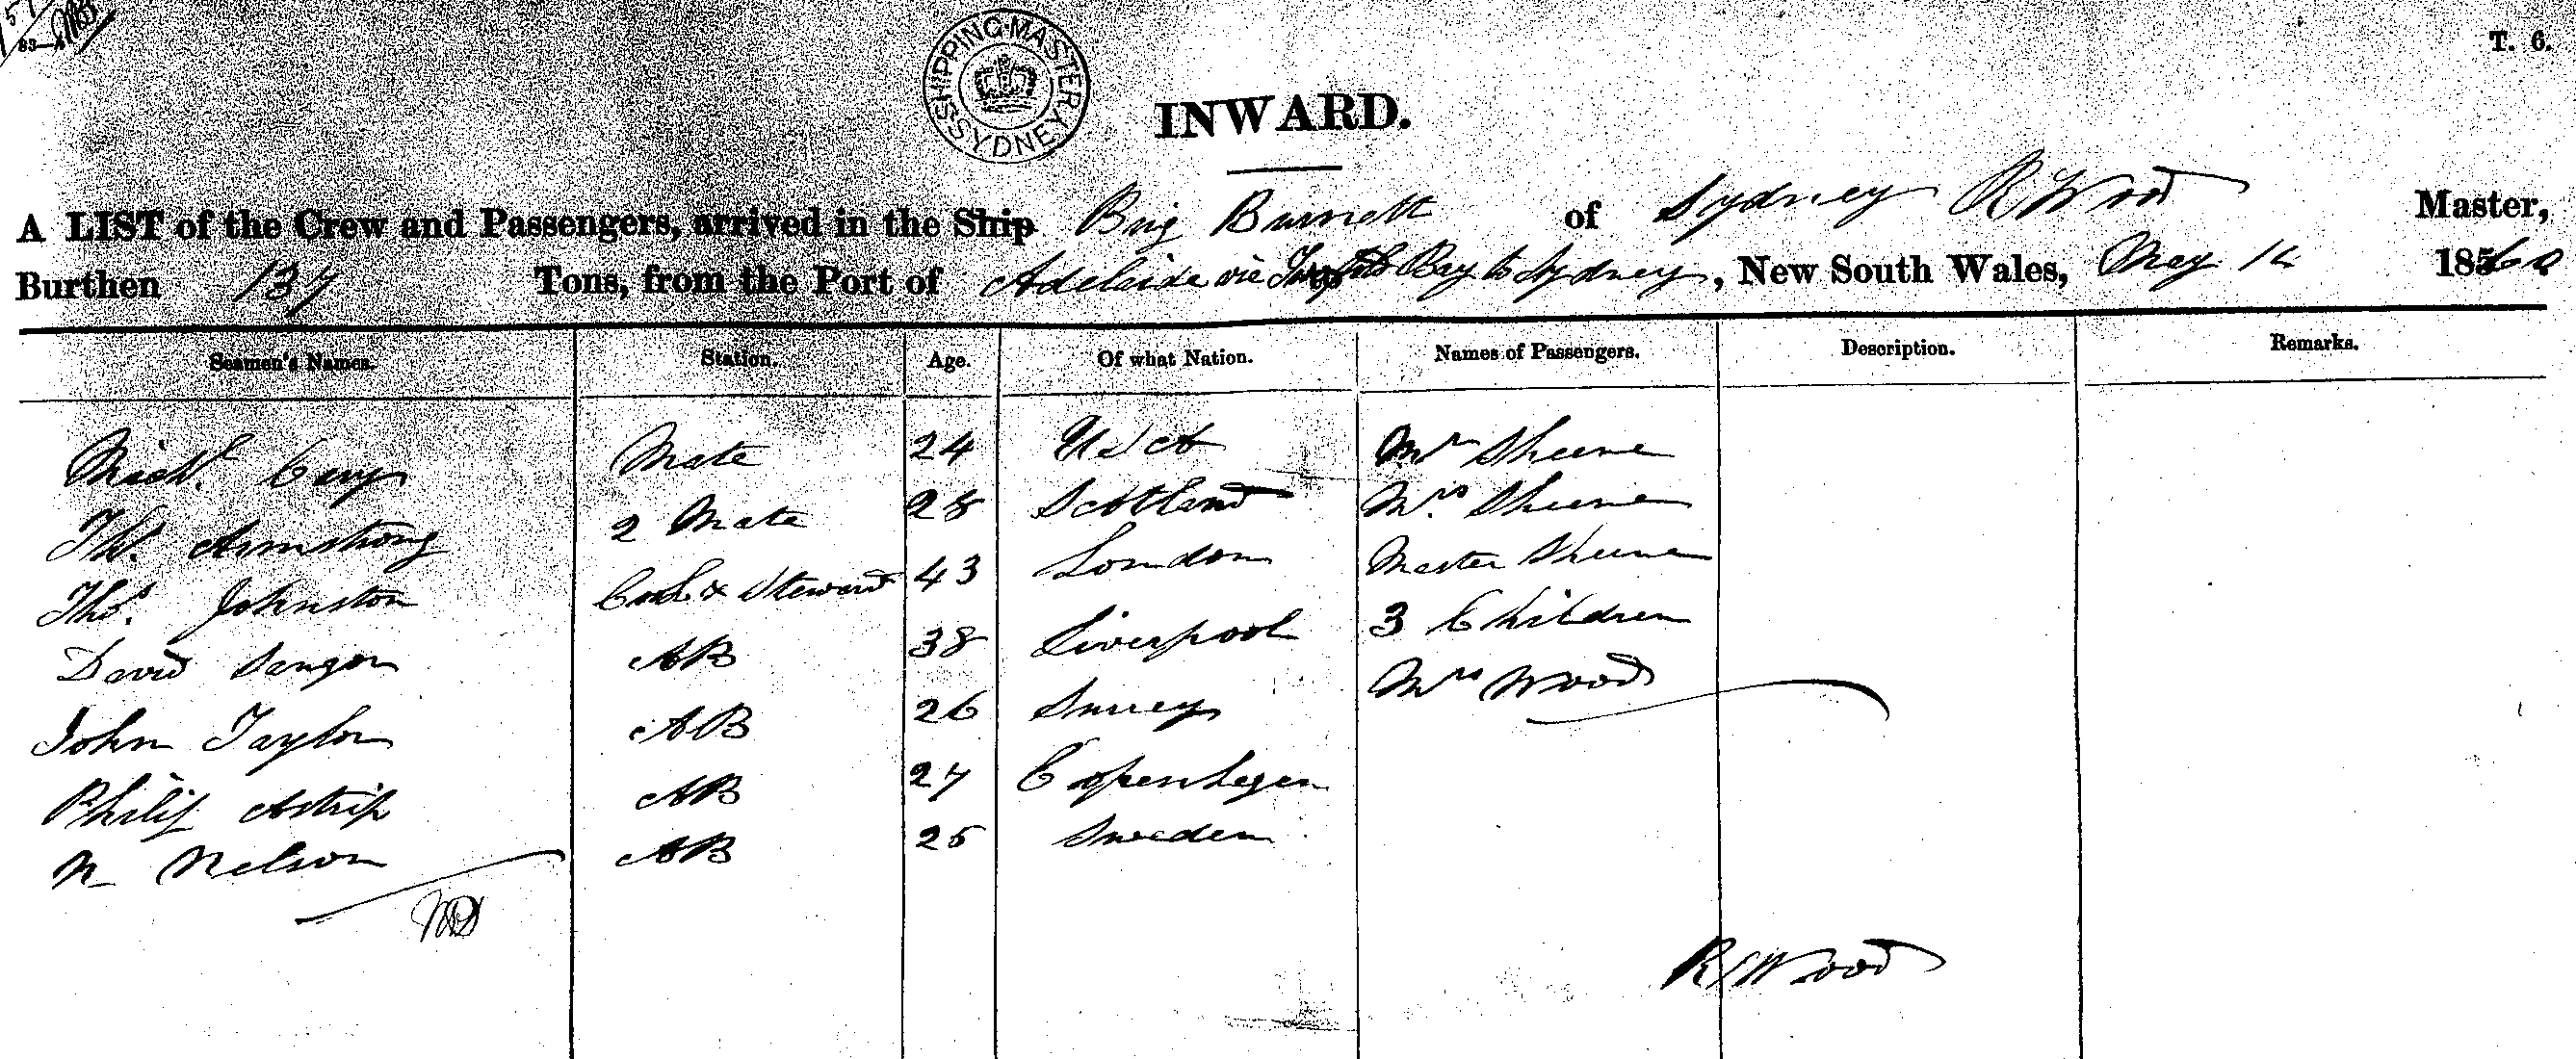 T. 6.
SHIPPING MASTER SYDNEY
INWARD.
A LIST of the Crew and Passengers, arrived in the Ship Brig Burnett of Sydney R Wood Master,
Burthen 137 Tons, from the Port of Adelaide via Twofold Bay to Sydney, New South Wales, May 14 1860
Seamen's Names. Station. Age. Of what Nation. Names of Passengers. Description. Remarks.
Michl. Mate 24 U S A Mr Sheene
Thos. Armstrong 2 Mate 28 Scotland Mrs. Sheene
Thos. Johnston Cook & Steward 43 London Master Sheene
David AB 38 Liverpool 3 Children
John Taylor AB 26 Surrey Mrs Wood
Philip Astrip AB 27 Copenhagen
N Nelson AB 25 Sweden
R S Wood